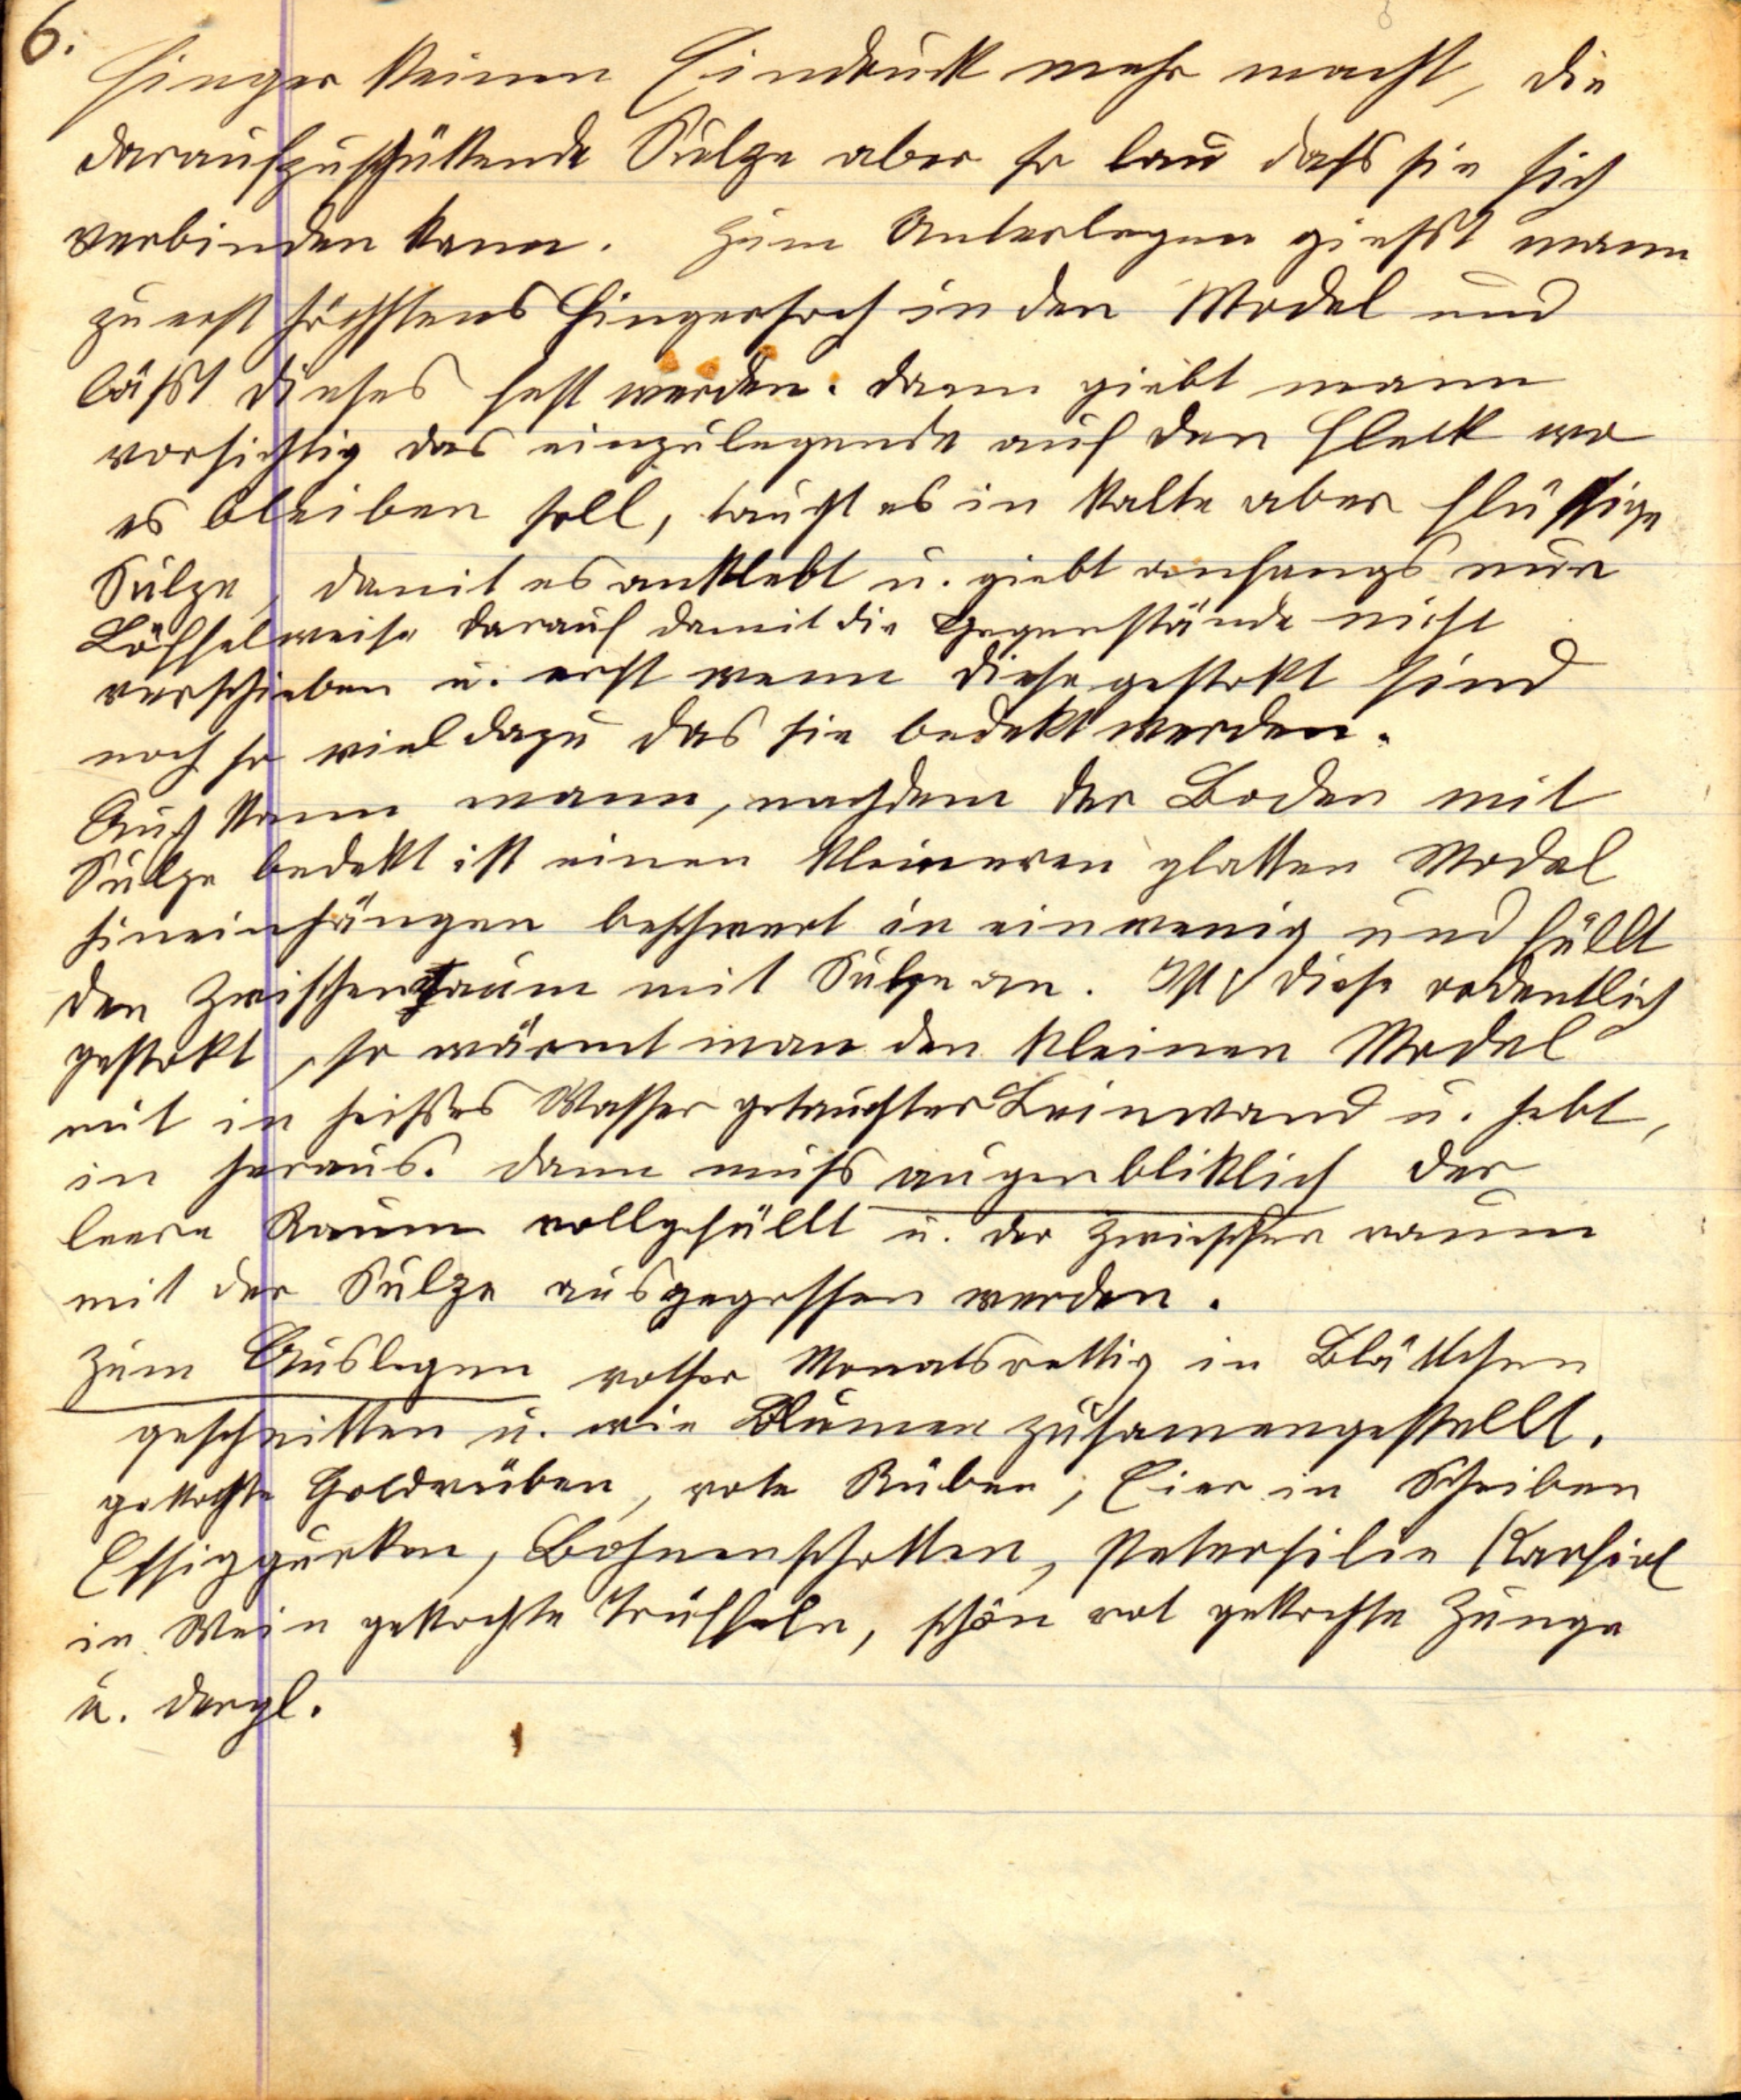 6.
Finger keinen Eindruck mehr macht, die
daraufzuschüttende Sulze aber so lau dass sie sich
verbinden kann. Zum Unterlegen giesst mann
zu erst höchstens Fingerhoch in den Model und
lässt dieses fest werden. dann giebt mann
vorsichtig das einzulegende auf den Fleck wo
es bleiben soll, taucht es in kalte aber flüssige
Sulze, damit es anklebt u. giebt anfangs nur
Löffelweise darauf damit die Gegenstände nicht
verschieben u. erst wenn diese gestokt sind
noch so viel dazu das sie bedekt werden.
Auch kann mann, nachdem der Boden mit
Sulze bedekt ist einen kleineren glatten Model
hineinhängen beschwert in ein wenig und füllt
den Zwischenraum mit Sulze an. Ist diese ordentlich
gestokt, so wärmt man den kleinen Model
mit in heisses Wasser getauchter Leinwand u. hebt,
in heraus. dann muss augenbliklich der
leere Raum vollgefüllt u. der Zwischen raum
mit der Sulze ausgegossen werden.
Zum Auslegen rother Monatsrettig in Blättchen
geschnitten u. wie Blumen zusamengestellt.
gekochte Goldrüben, rote Rüben, Eier in Scheiben
Essiggurken, Bohnenschotten, Petersilie Karfiol
in Wein gekochte Trüffeln, schön rot gekochte Zunge
u. dergl.